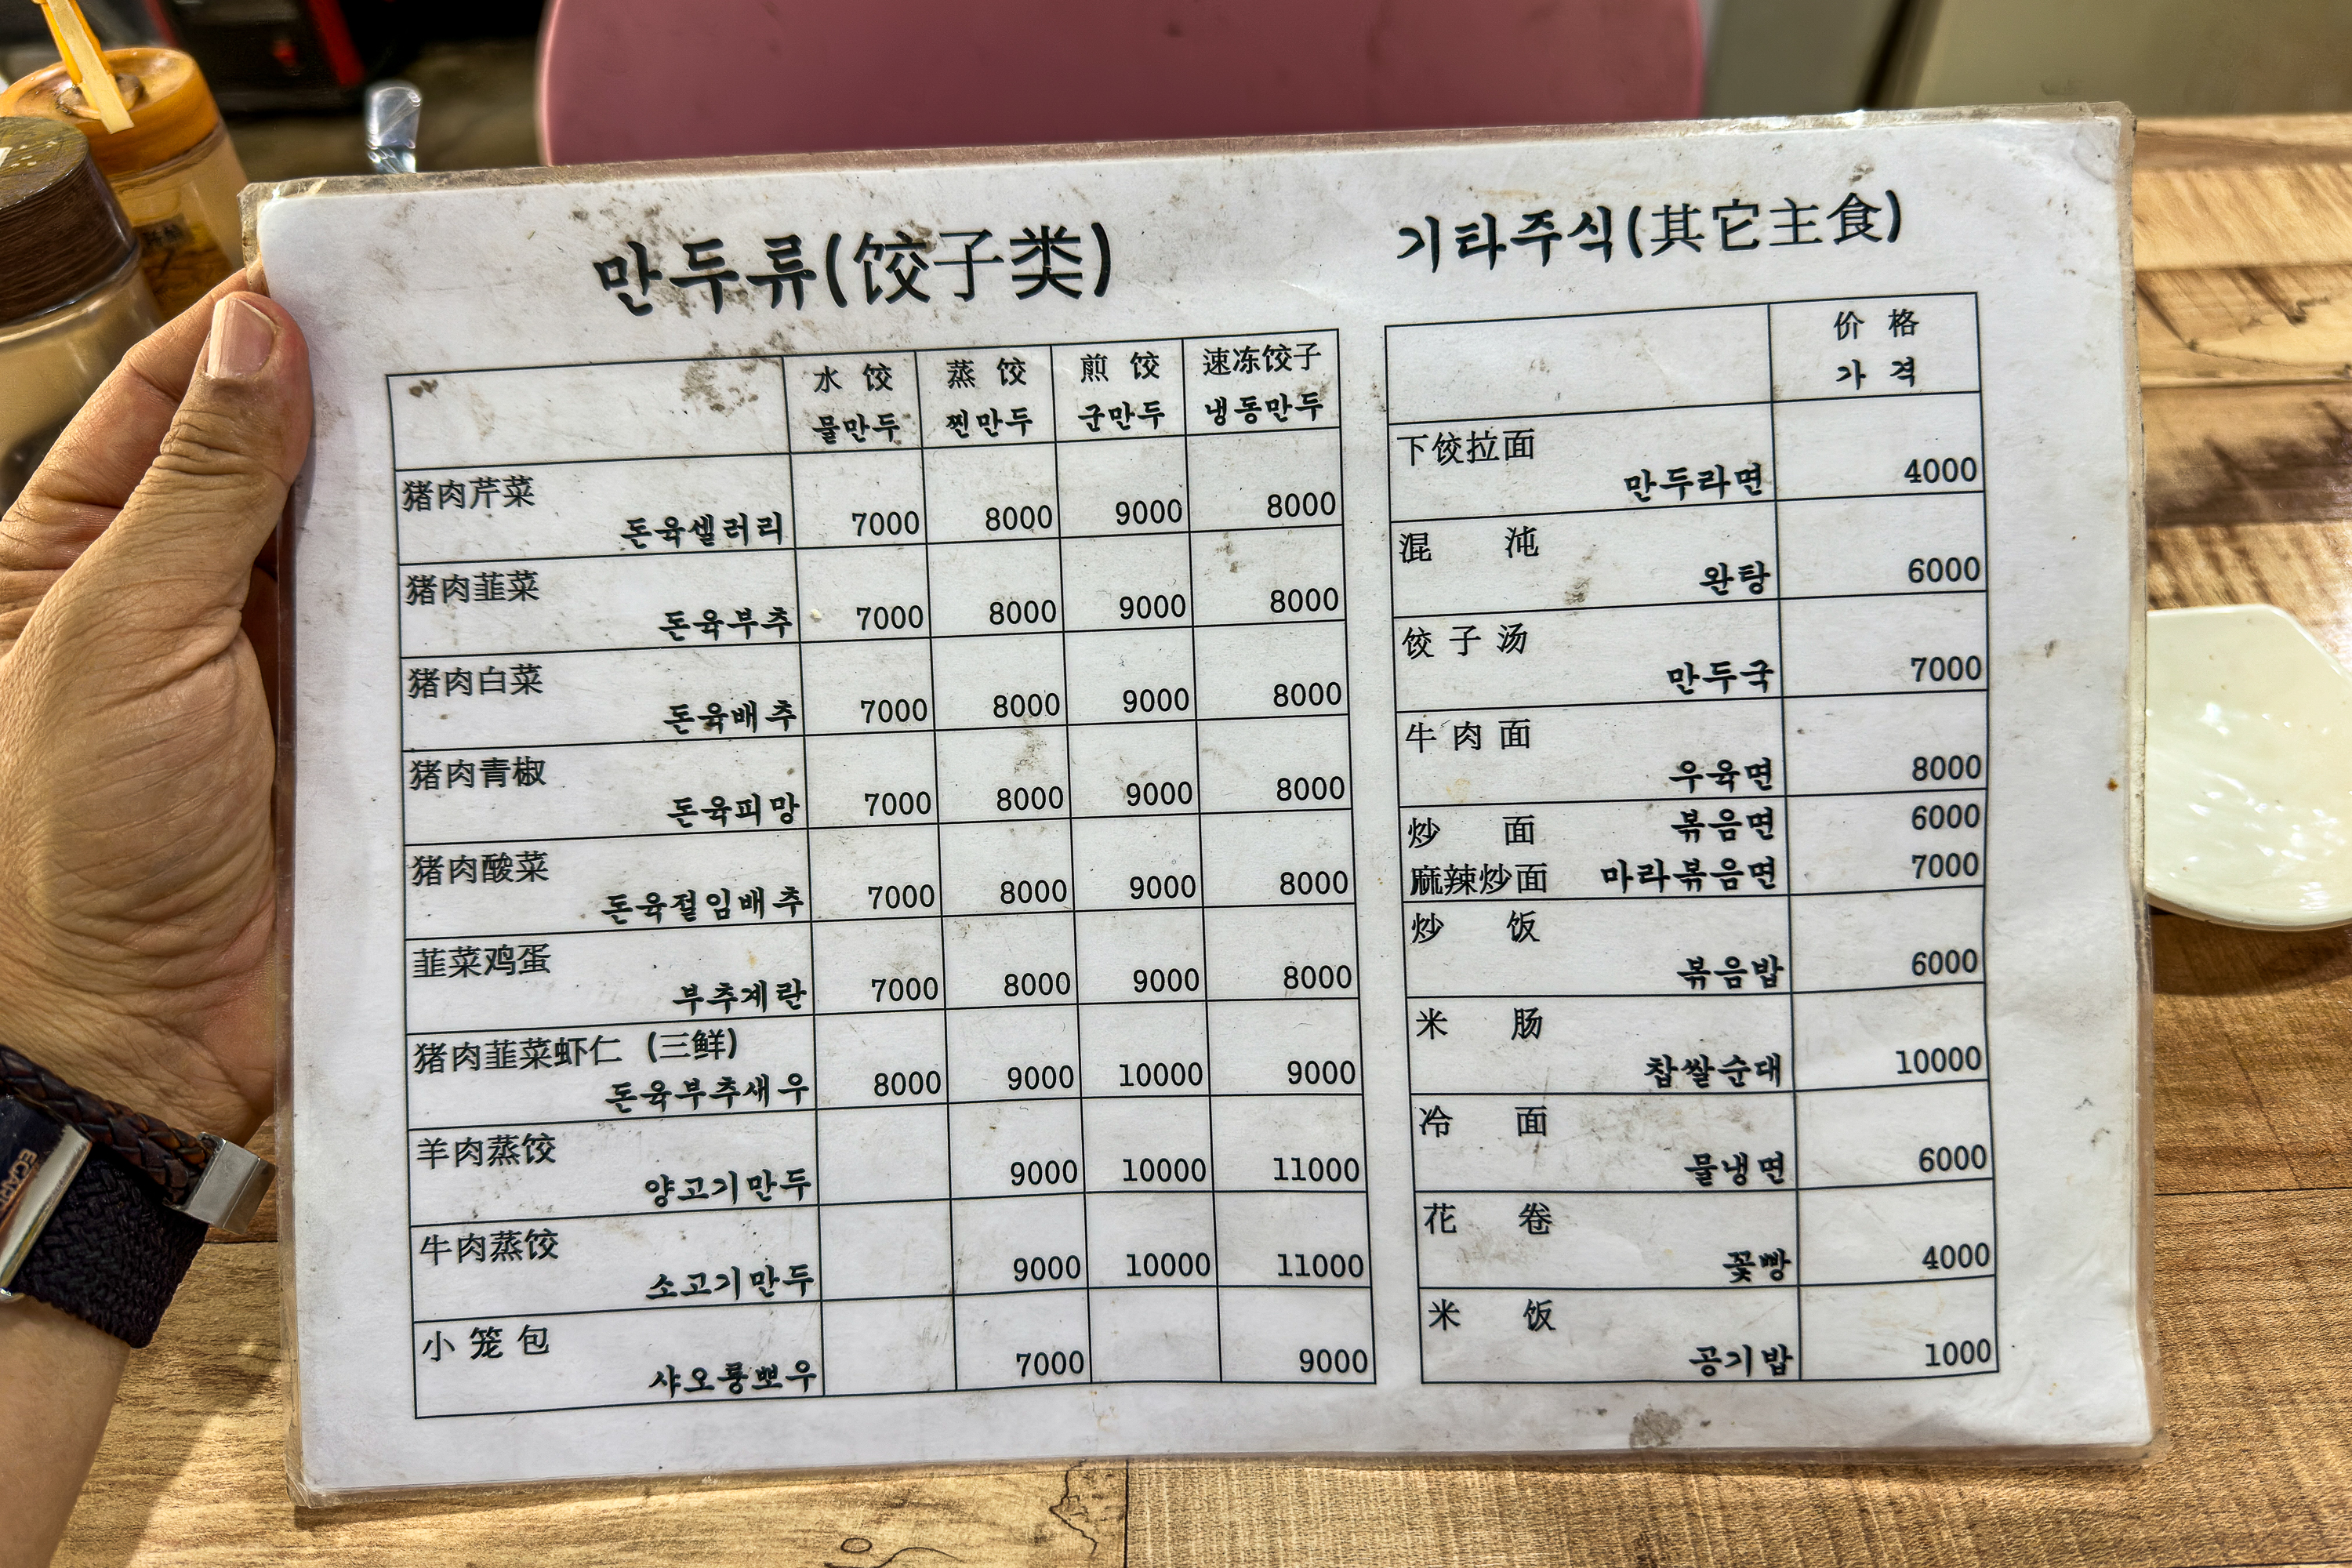 만두류(饺子类)
水 饺 蒸 饺 煎 饺 速冻饺子
물만두 찐만두 군만두 냉동만두
猪肉芹菜
돈육셀러리 7000 8000 9000 8000
猪肉韭菜
돈육부추 7000 8000 9000 8000
猪肉白菜
돈육배추 7000 8000 9000 8000
猪肉青椒
돈육피망 7000 8000 9000 8000
猪肉酸菜
돈육절임배추 7000 8000 9000 8000
韭菜鸡蛋
부추계란 7000 8000 9000 8000
猪肉韭菜虾仁 (三鲜)
돈육부추새우 8000 9000 10000 9000
羊肉蒸饺
양고기만두 9000 10000 11000
牛肉蒸饺
소고기만두 9000 10000 11000
小 笼 包
샤오룡뽀우 7000 9000
기타주식(其它主食)
价 格
가 격
下饺拉面
만두라면 4000
混 沌
완탕 6000
饺 子 汤
만두국 7000
牛 肉 面
우육면 8000
炒 面 볶음면 6000
麻辣炒面 마라볶음면 7000
炒 饭
볶음밥 6000
米 肠
찹쌀순대 10000
冷 面
물냉면 6000
花 卷
꽃빵 4000
米 饭
공기밥 1000